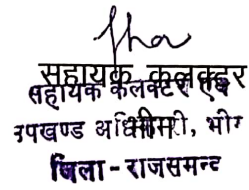 सहायक कलक्टर
सहायक कलक्टर एवं
उपखण्ड अधिकारी, भीम
भीम
जिला - राजसमन्द